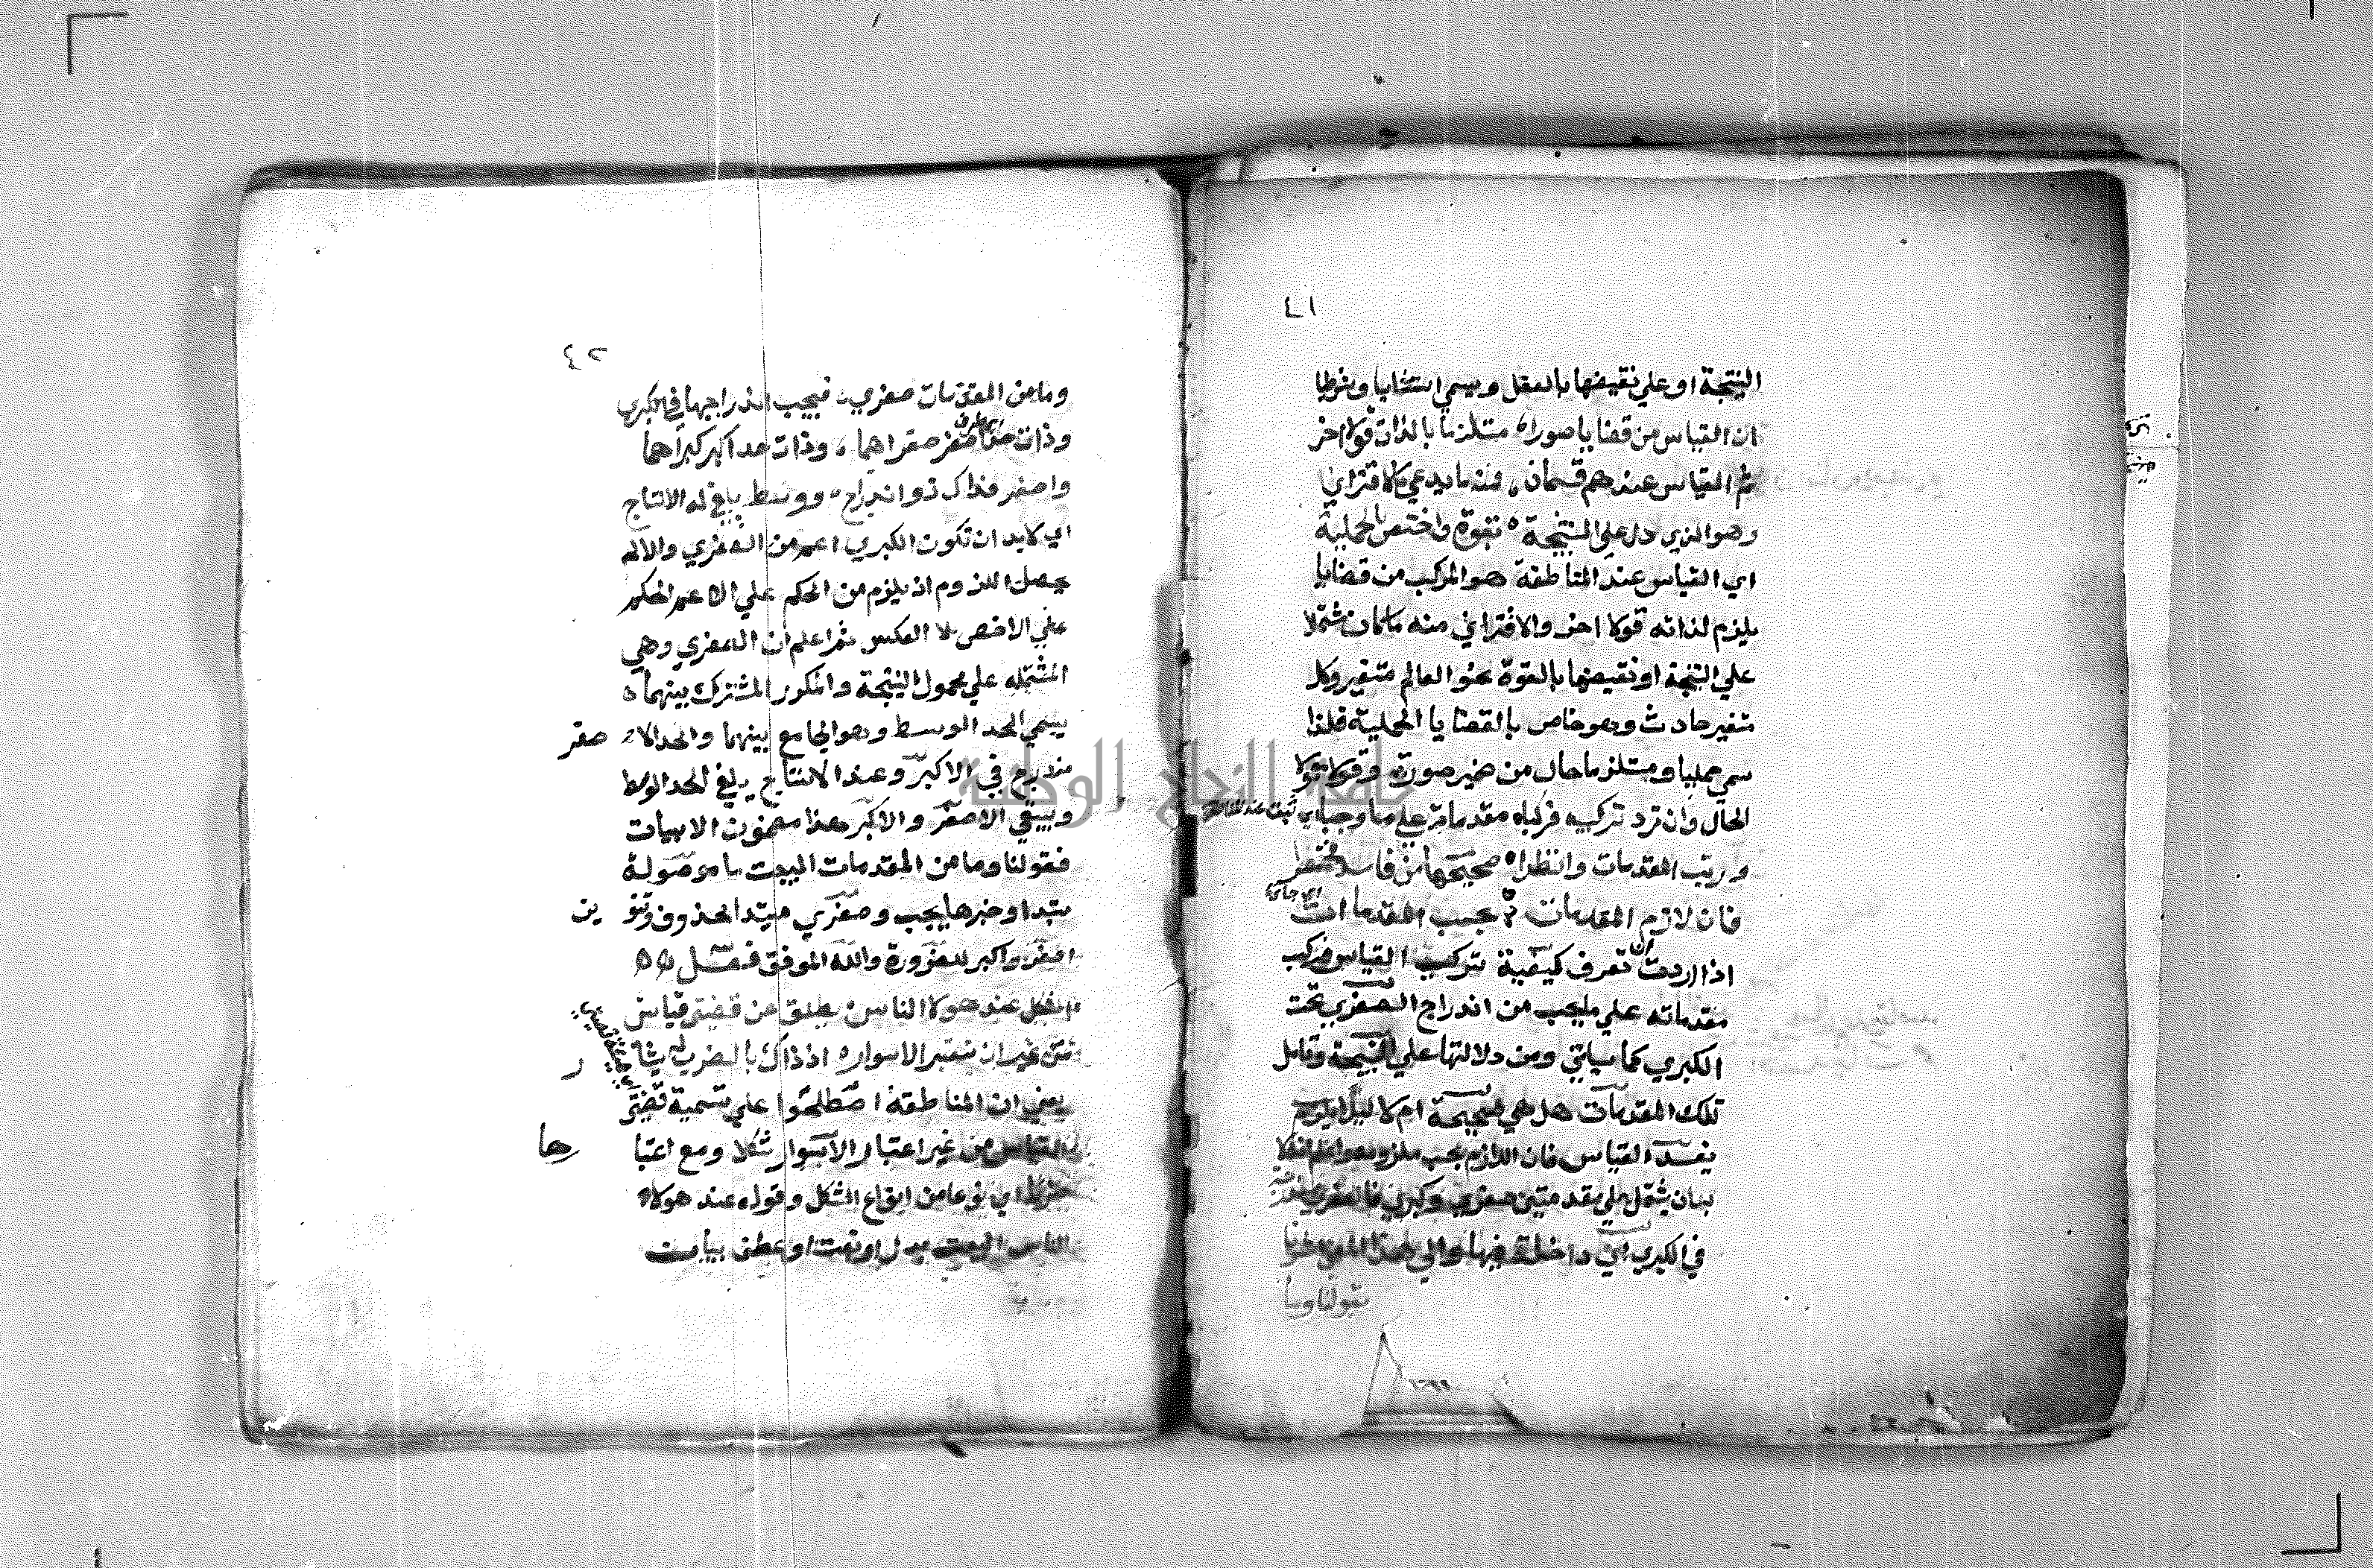 ٤١
النتيجة او علي نقيضها بالفعل ويسمي استثنايا وشرطيا
ان القياس من قضايا صورا مستلزما بالذات قولا اخر
ثم القياس عندهم قسمان فمنه ما يدعي بالاقتراني
وهو الذي دل علي النتيجة بقوة واختص بالحملية
اي القياس عند المناطقة هو المركب من قضايا
يلزم لذاته قولا اخر والاقتراني منه ما كان مشتملا
علي النتيجة او نقيضها بالقوة نحو العالم متغير وكل
متغير حادث وهو خاص بالقضايا الحملية فلذا
سمي حمليا ومستلزما حال من ضمير صورا وقولا
الحال وان ترد تركيبه فركبا مقدماته علي ما وجبا
ورتب المقدمات وانظرا صحيحها من فاسد مختبرا
فان لازم المقدمات بحسب المقدمات ات
اذا اردت ان تعرف كيفية تركيب القياس فركب
مقدماته علي ما يجب من اندراج الصغري تحت
الكبري كما سياتي ومن دلالتها علي النتيجة وتامل
تلك المقدمات هل هي صحيحة ام لا ليلا
يفسد القياس فان اللازم بحسب ملزومه
علي مقدمتين صغري وكبري فالصغري
في الكبري اي داخلة فيها والي هذا
بقولنا وما
٤٢
وما من المقدمات صغري فيجب اندراجها في الكبري
وذات حد اصغر صغراهما وذات حد اكبر كبراهما
واصغر فذاك ذو اندراج ووسط يلغي لدا الانتاج
اي لابد ان تكون الكبري اعم من الصغري والا لم
يحصل اللزوم اذ يلزم من الحكم علي الاعم الحكم
علي الاخص بلا العكس ثم اعلم ان الصغري وهي
المشتمله علي محمول النتيجة والمكرر المشترك بينهما
يسمي الحد الوسط وهو الجامع بينهما والحد الاصغر
مندرج في الاكبر وعند الانتاج يلغي الحد الوسط
ويبقي الاصغر والاكبر هذا مضمون الابيات
فقولنا وما من المقدمات البيت ما موصولة
مبتدا وخبرها يجب وصغري مبتدا محذوف وتنوين
اصغر واكبر للضرورة والله الموفق فصل
الشكل عند هولا الناس يطلق عن قضيتي قياس
من غير ان تعتبر الاسوار اذ ذاك بالضرب له يشار
يعني ان المناطقة اصطلحوا علي تسمية قضيتي
القياس من غير اعتبار الاسوار شكلا ومع اعتبارها
ضربا اي نوعا من انواع الشكل وقوله عند هولا
الناس بدل او نعت او عطف بيان